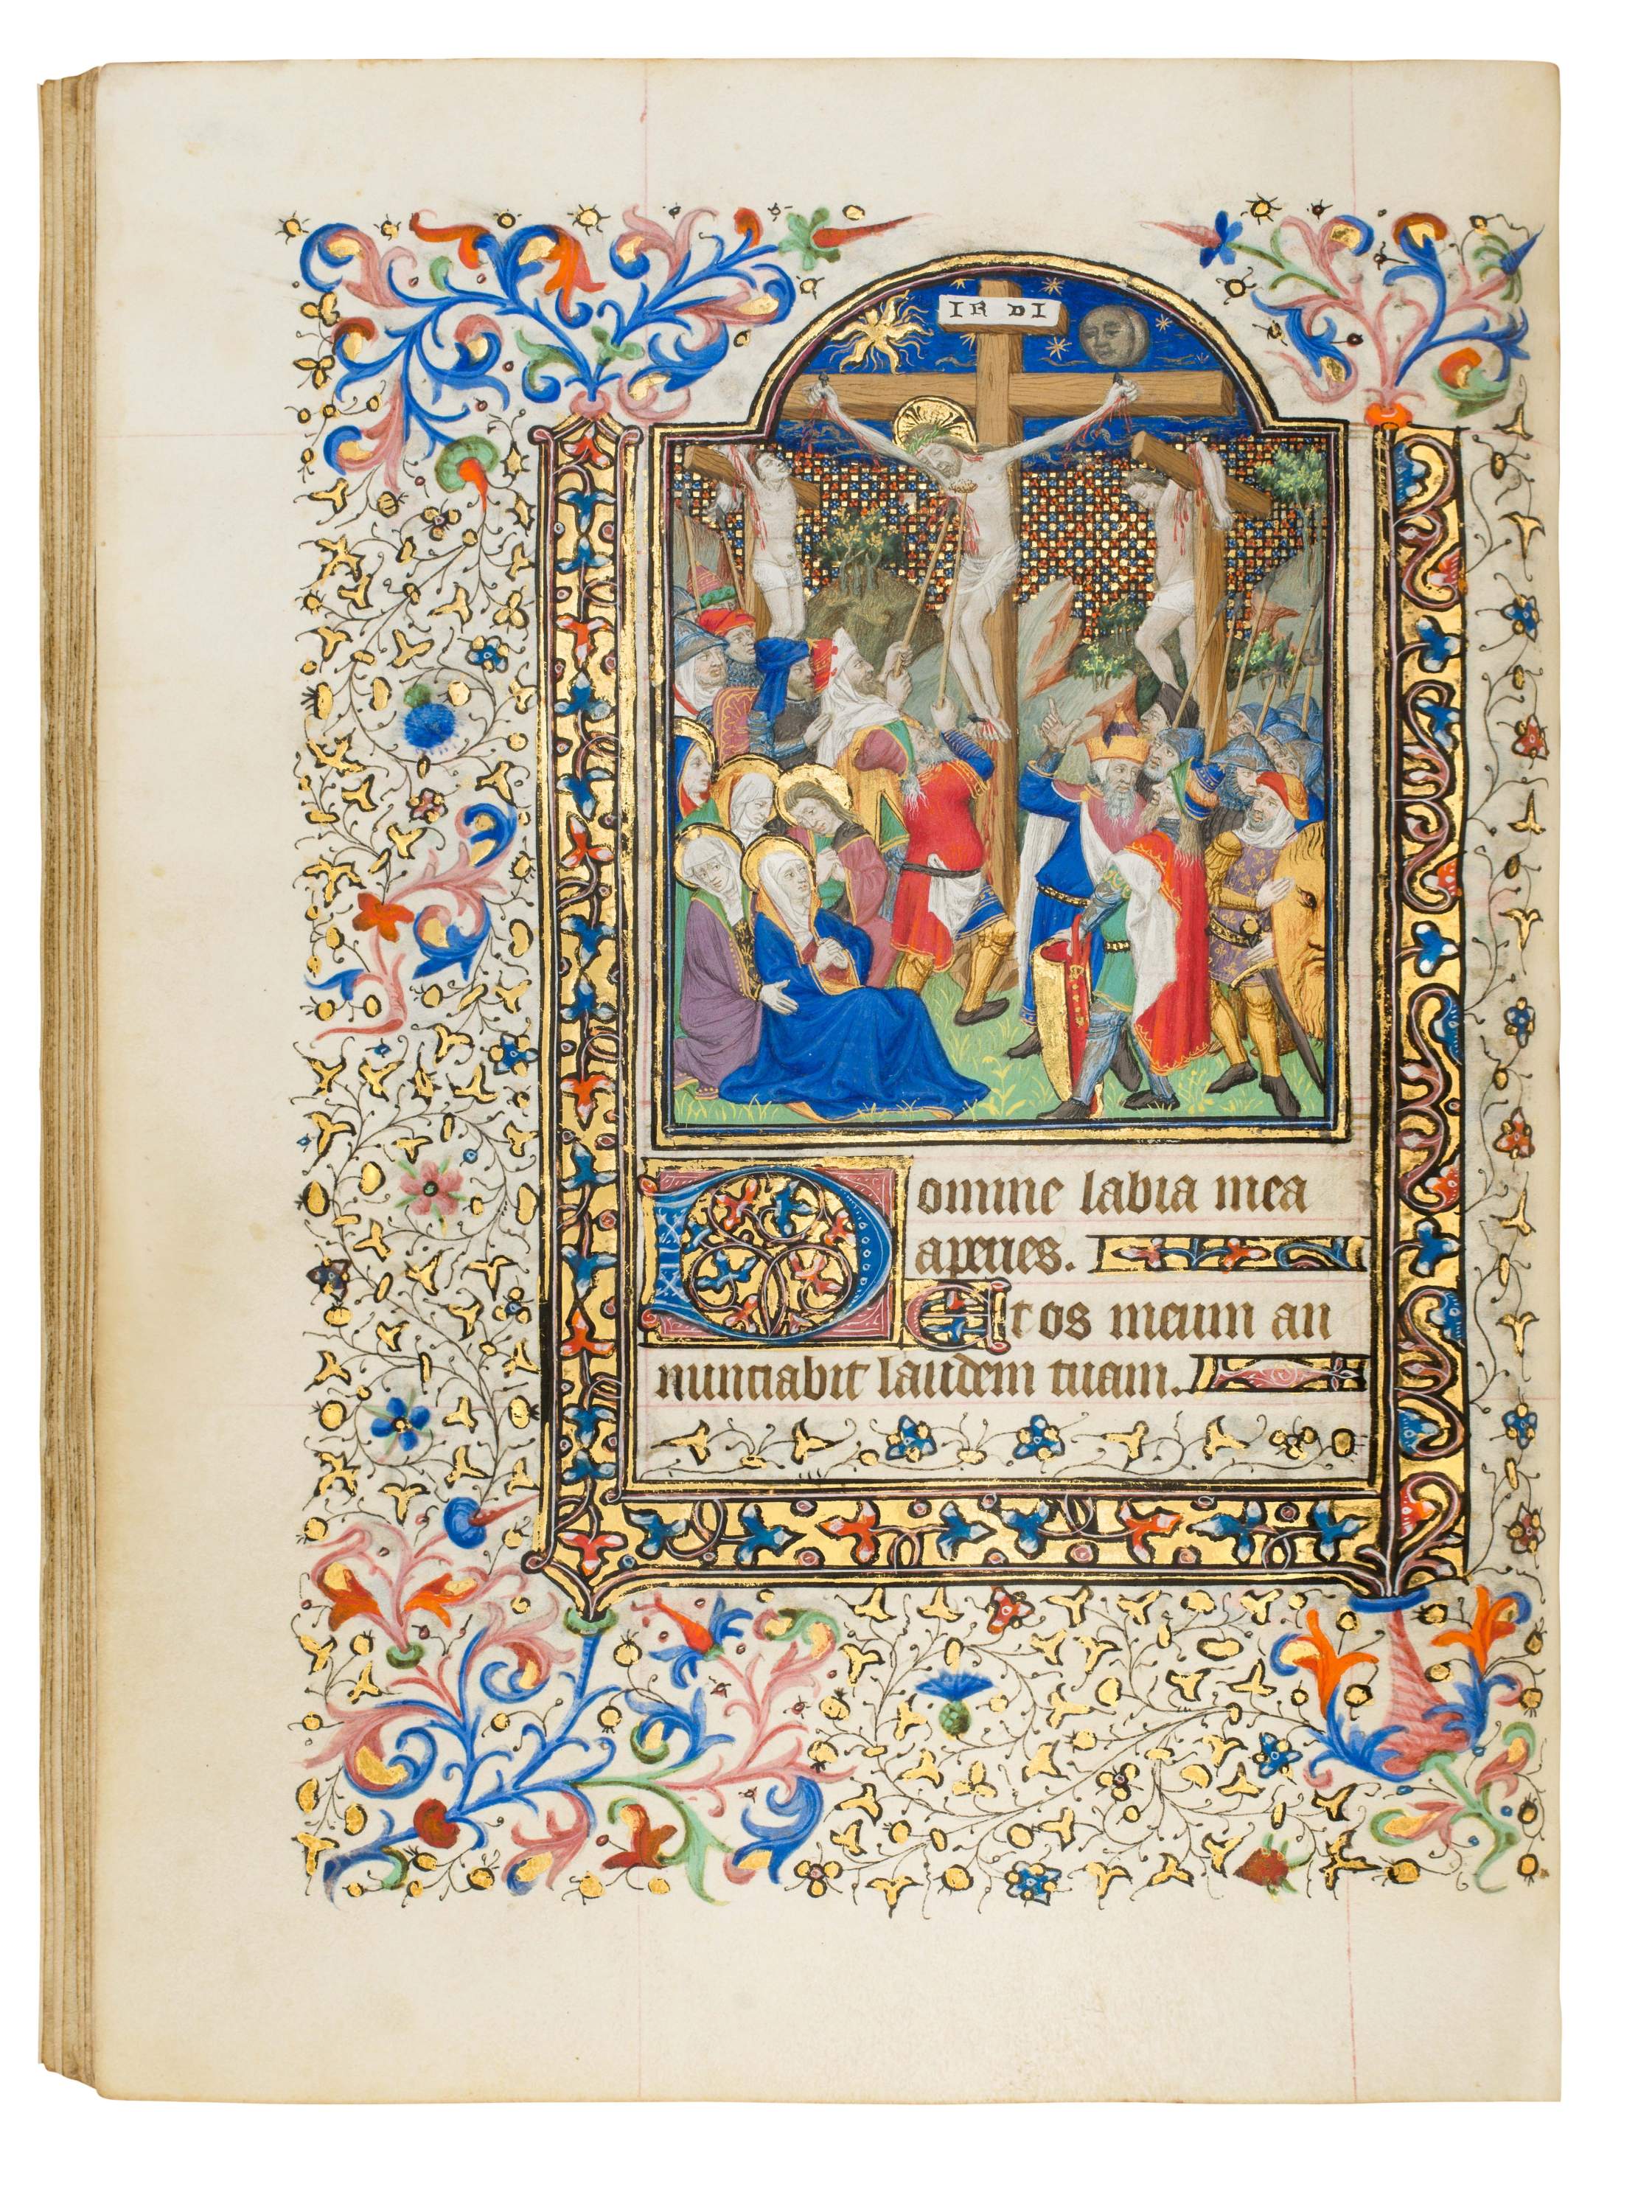 IR DI
Domine labia mea
aperies.
Et os meum an
nunciabit laudem tuam.